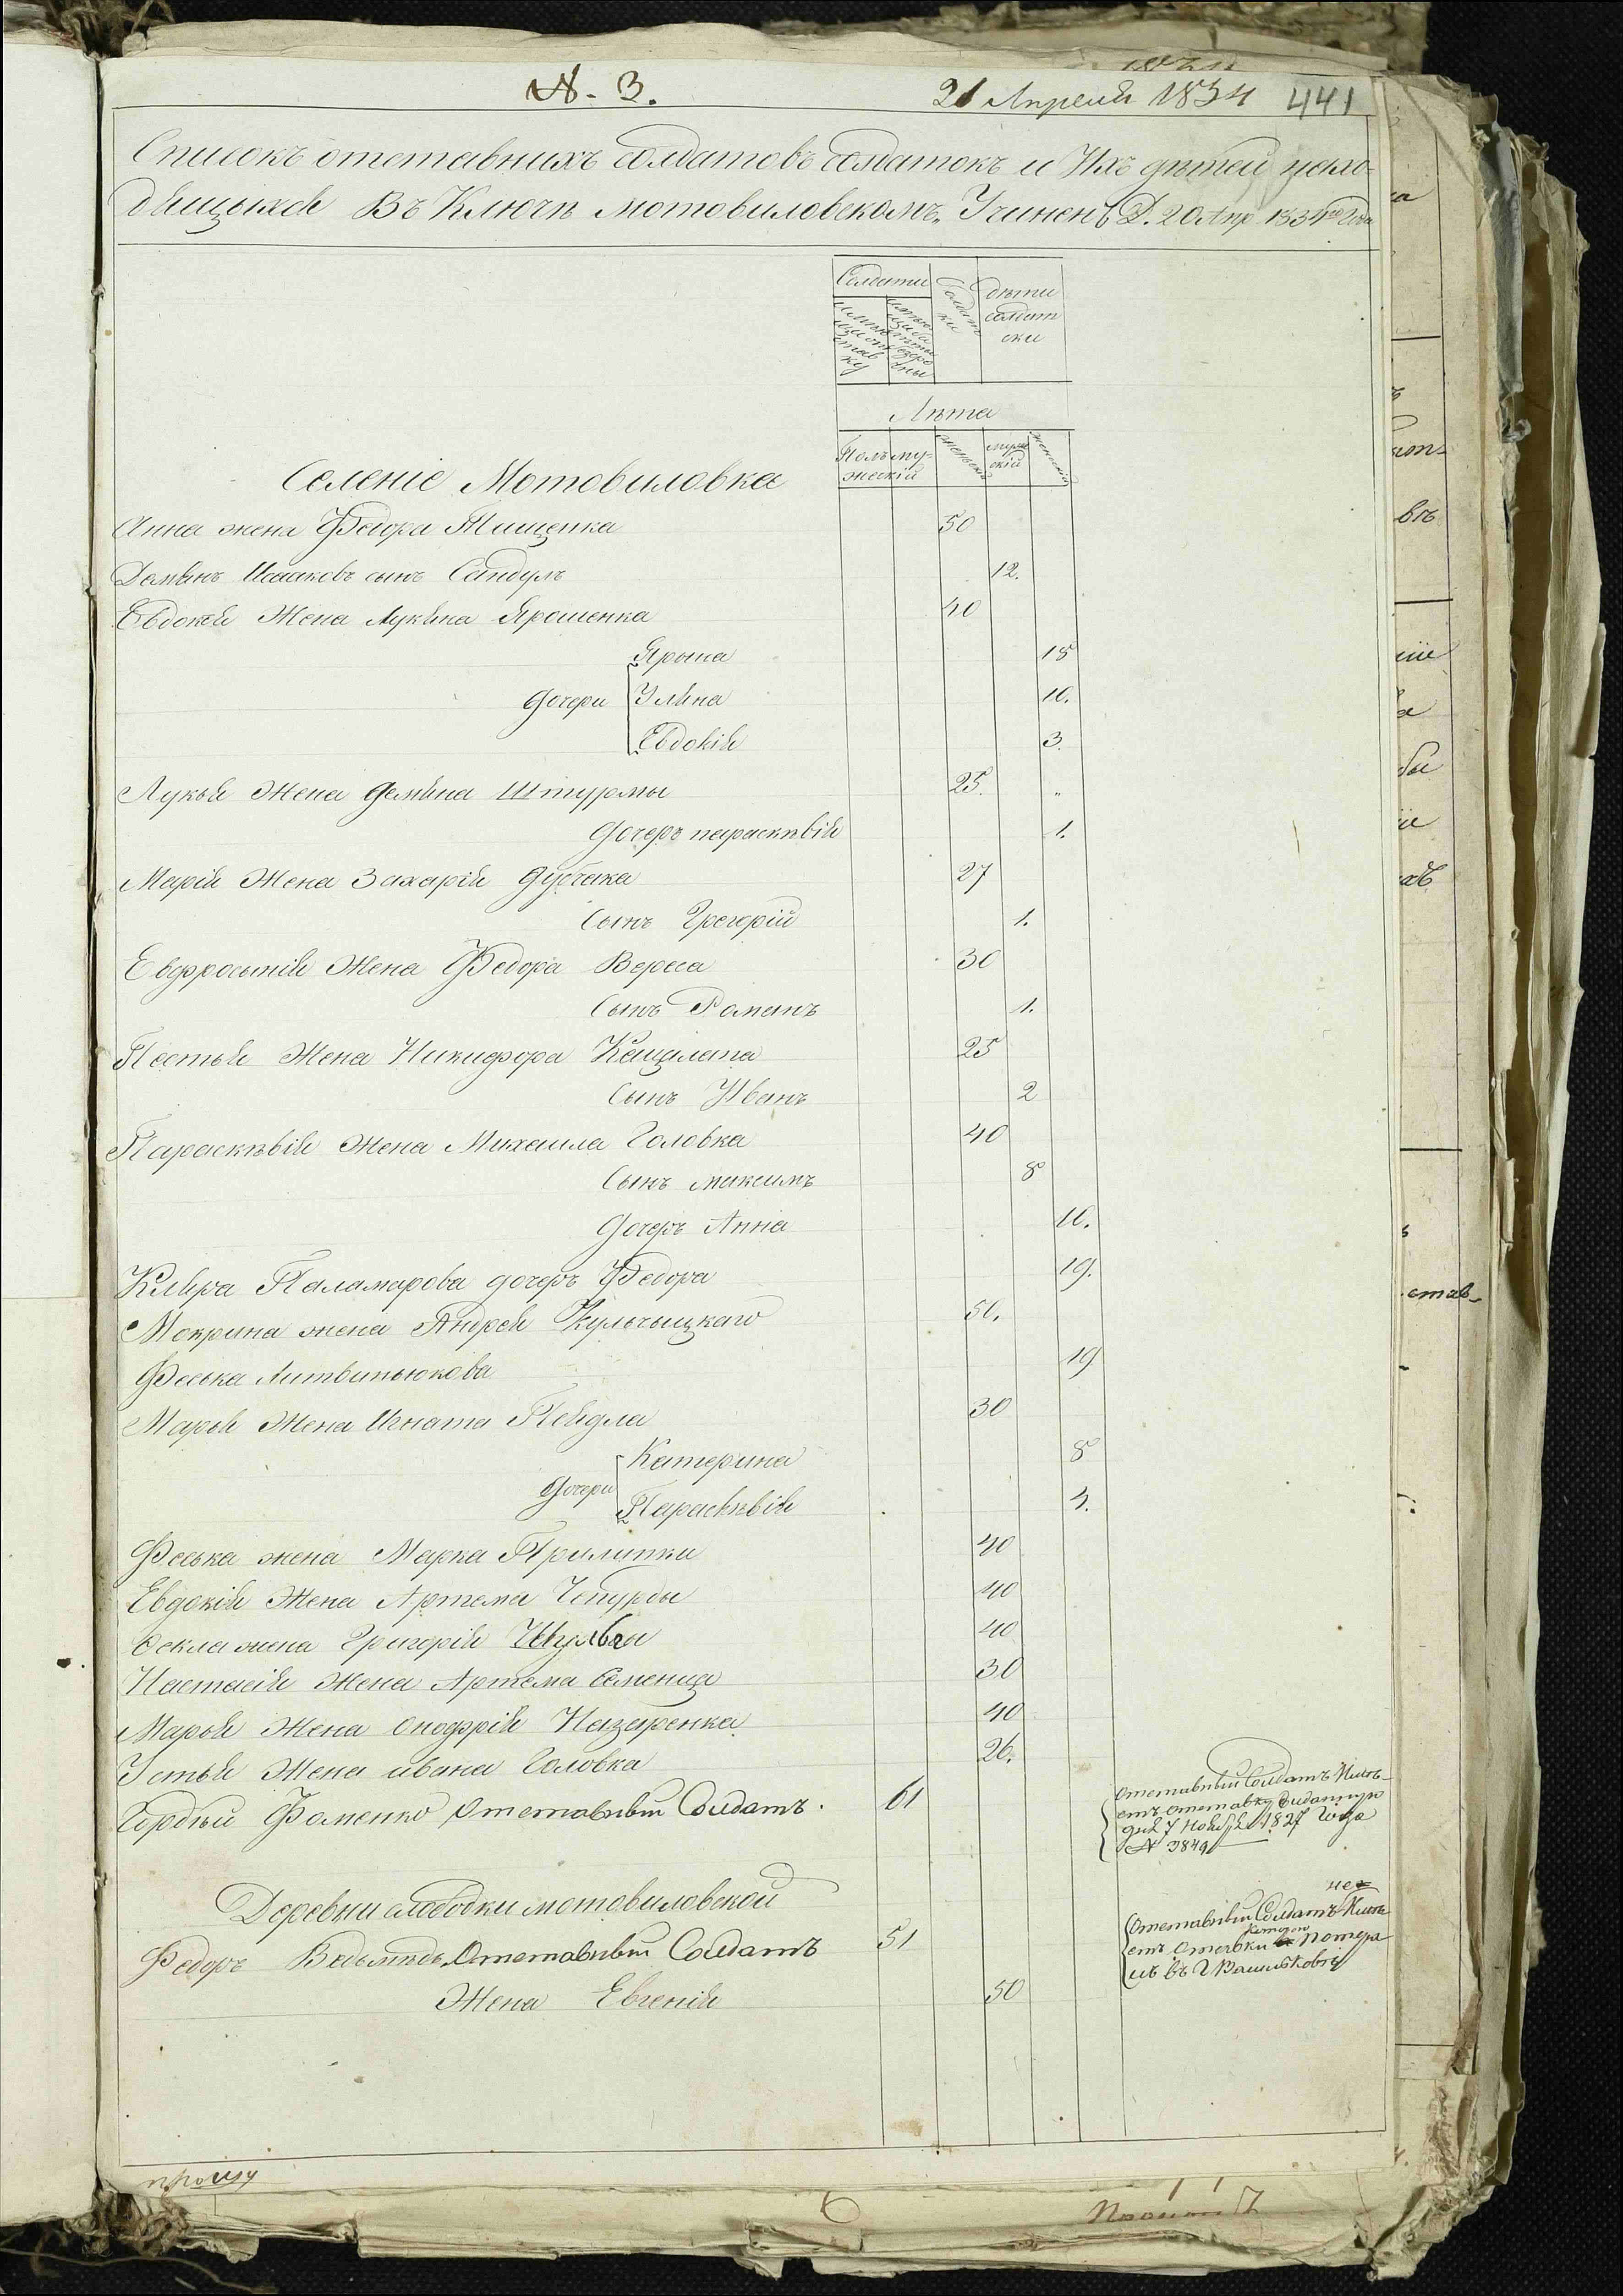 №. 3.
21 Апреля 1834 441
Списокъ отставнихъ солдатовъ солдатокъ и Ихъ дѣтей нахо-
дящыхся Въ Ключѣ мотовиловскомъ. Учиненъ Д. 20 Апр 1834го Года
Солдати Солдатки дѣти солдатски
Лѣта
Полъ му-жескій женьскій мужскій женскій
Селеніе Мотовиловка
Анна жена Федора Тищенка 50
Демянъ Исааковъ сынъ Сандулъ 12.
Евдокія Жена Лукяна Ярошенка 40
Ярына 18
дочери Уляна 10.
Евдокія 3.
Лукья Жена демяна Штурмы 25. "
дочеръ парасквія 1.
Марія Жена Захарія дубчака 27
Сынъ Грегорій 1.
Евфросынія Жена Федора Вереса 30
Сынъ Романъ 1.
Настья Жена Никифора Кащалапа 25
Сынъ Иванъ 2
Парасквія Жена Михаила Головка 40
Сынъ максимъ 8
дочеръ Анна 10.
Кляра Паламарова дочеръ Федора 19.
Мокрина жена Андрея Кульчыцкаго 50.
Феська Литвиньюкова 19
Марья Жена Игната Пейдла 30
Катерина 8
дочери
Парасквія 4.
Феська жена Марка Прилипки 40
Евдокія Жена Артема Чепурды 40
Фекла жена Григорія 40
Настасія Жена Артема Семенца 30
Марья Жена Онофрія Назаренка 40
Устья Жена ивана Головка 26.
Гордѣй Фоменко Отставный Солдатъ. 61
Отставный Солдатъ Имѣ-
етъ отставку виданную
дня 7 Ноября 1827 Года
№ 3849
Деревни слободки мотовиловской
Федоръ Ведьмѣдь Отставный Солдатъ 51
не
Отставный Солдатъ Имѣ-
етъ Отставки которю потеря
лъ въ Г Васильковѣ
Жена Евгенія 50